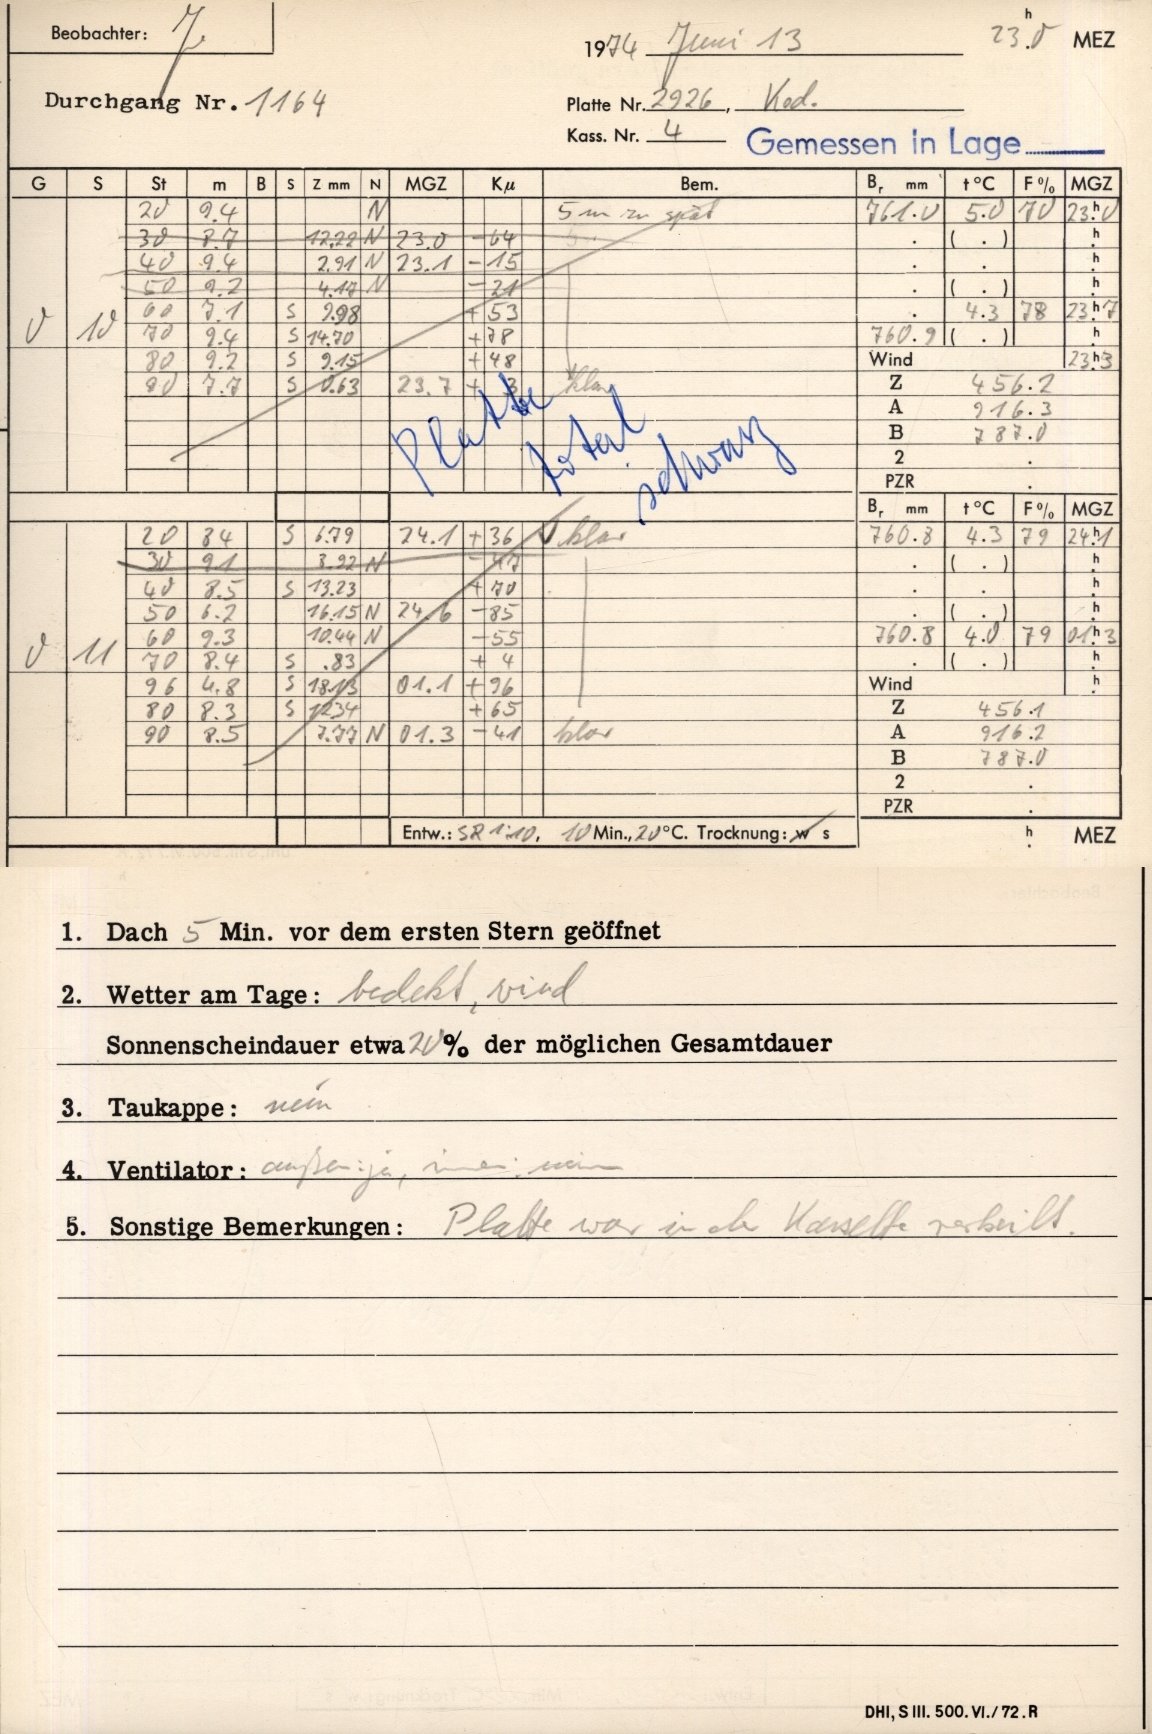 Beobachter: J
1974 Juni 13 23.0 h MEZ
Durchgang Nr. 1164
Platte Nr. 2926, Kod.
Kass. Nr. 4 Gemessen in Lage
G S St m B S Z mm N MGZ Kμ Bem. Br mm t °C F % MGZ
20 9.4 N 5 m zu spät 761.0 5.0 70 23h0
30 8.7 12.22 N 23.0 -64 . ( . ) h
40 9.4 2.91 N 23.1 -15 . . h
50 9.2 4.17 N -21 . ( . ) h
0 10 60 7.1 S 9.98 +53 . 4.3 78 23h7
70 9.4 S 14.70 +78 760.9 ( . ) h
80 9.2 S 9.15 +48 Wind 23h3
90 7.7 S 0.63 23.7 + 3 klar Z 456.2
A 916.3
B 787.0
2 .
PZR .
Platte total schwarz
Br mm t °C F % MGZ
20 8.4 S 6.79 24.1 +36 klar 760.8 4.3 79 24h1
30 9.1 8.92 N -47 . ( . ) h
40 8.5 S 13.23 +70 . . h
50 6.2 16.15 N 24.6 -85 . ( . ) h
0 11 60 9.3 10.44 N -55 760.8 4.0 79 01h3
70 8.4 S .83 + 4 . ( . ) h
96 4.8 S 18.13 01.1 +96 Wind h
80 8.3 S 12.34 +65 Z 456.1
90 8.5 7.77 N 01.3 -41 klar A 916.2
B 787.0
2 .
PZR .
Entw.: SR 1:10, 10 Min., 20 °C. Trocknung: w s h MEZ
1. Dach 5 Min. vor dem ersten Stern geöffnet
2. Wetter am Tage: bedekt, wind
Sonnenscheindauer etwa 20 % der möglichen Gesamtdauer
3. Taukappe: nein
4. Ventilator: außen: ja, innen: nein
5. Sonstige Bemerkungen: Platte war in der Kassette verkeilt.
DHI, S III. 500. VI./72. R